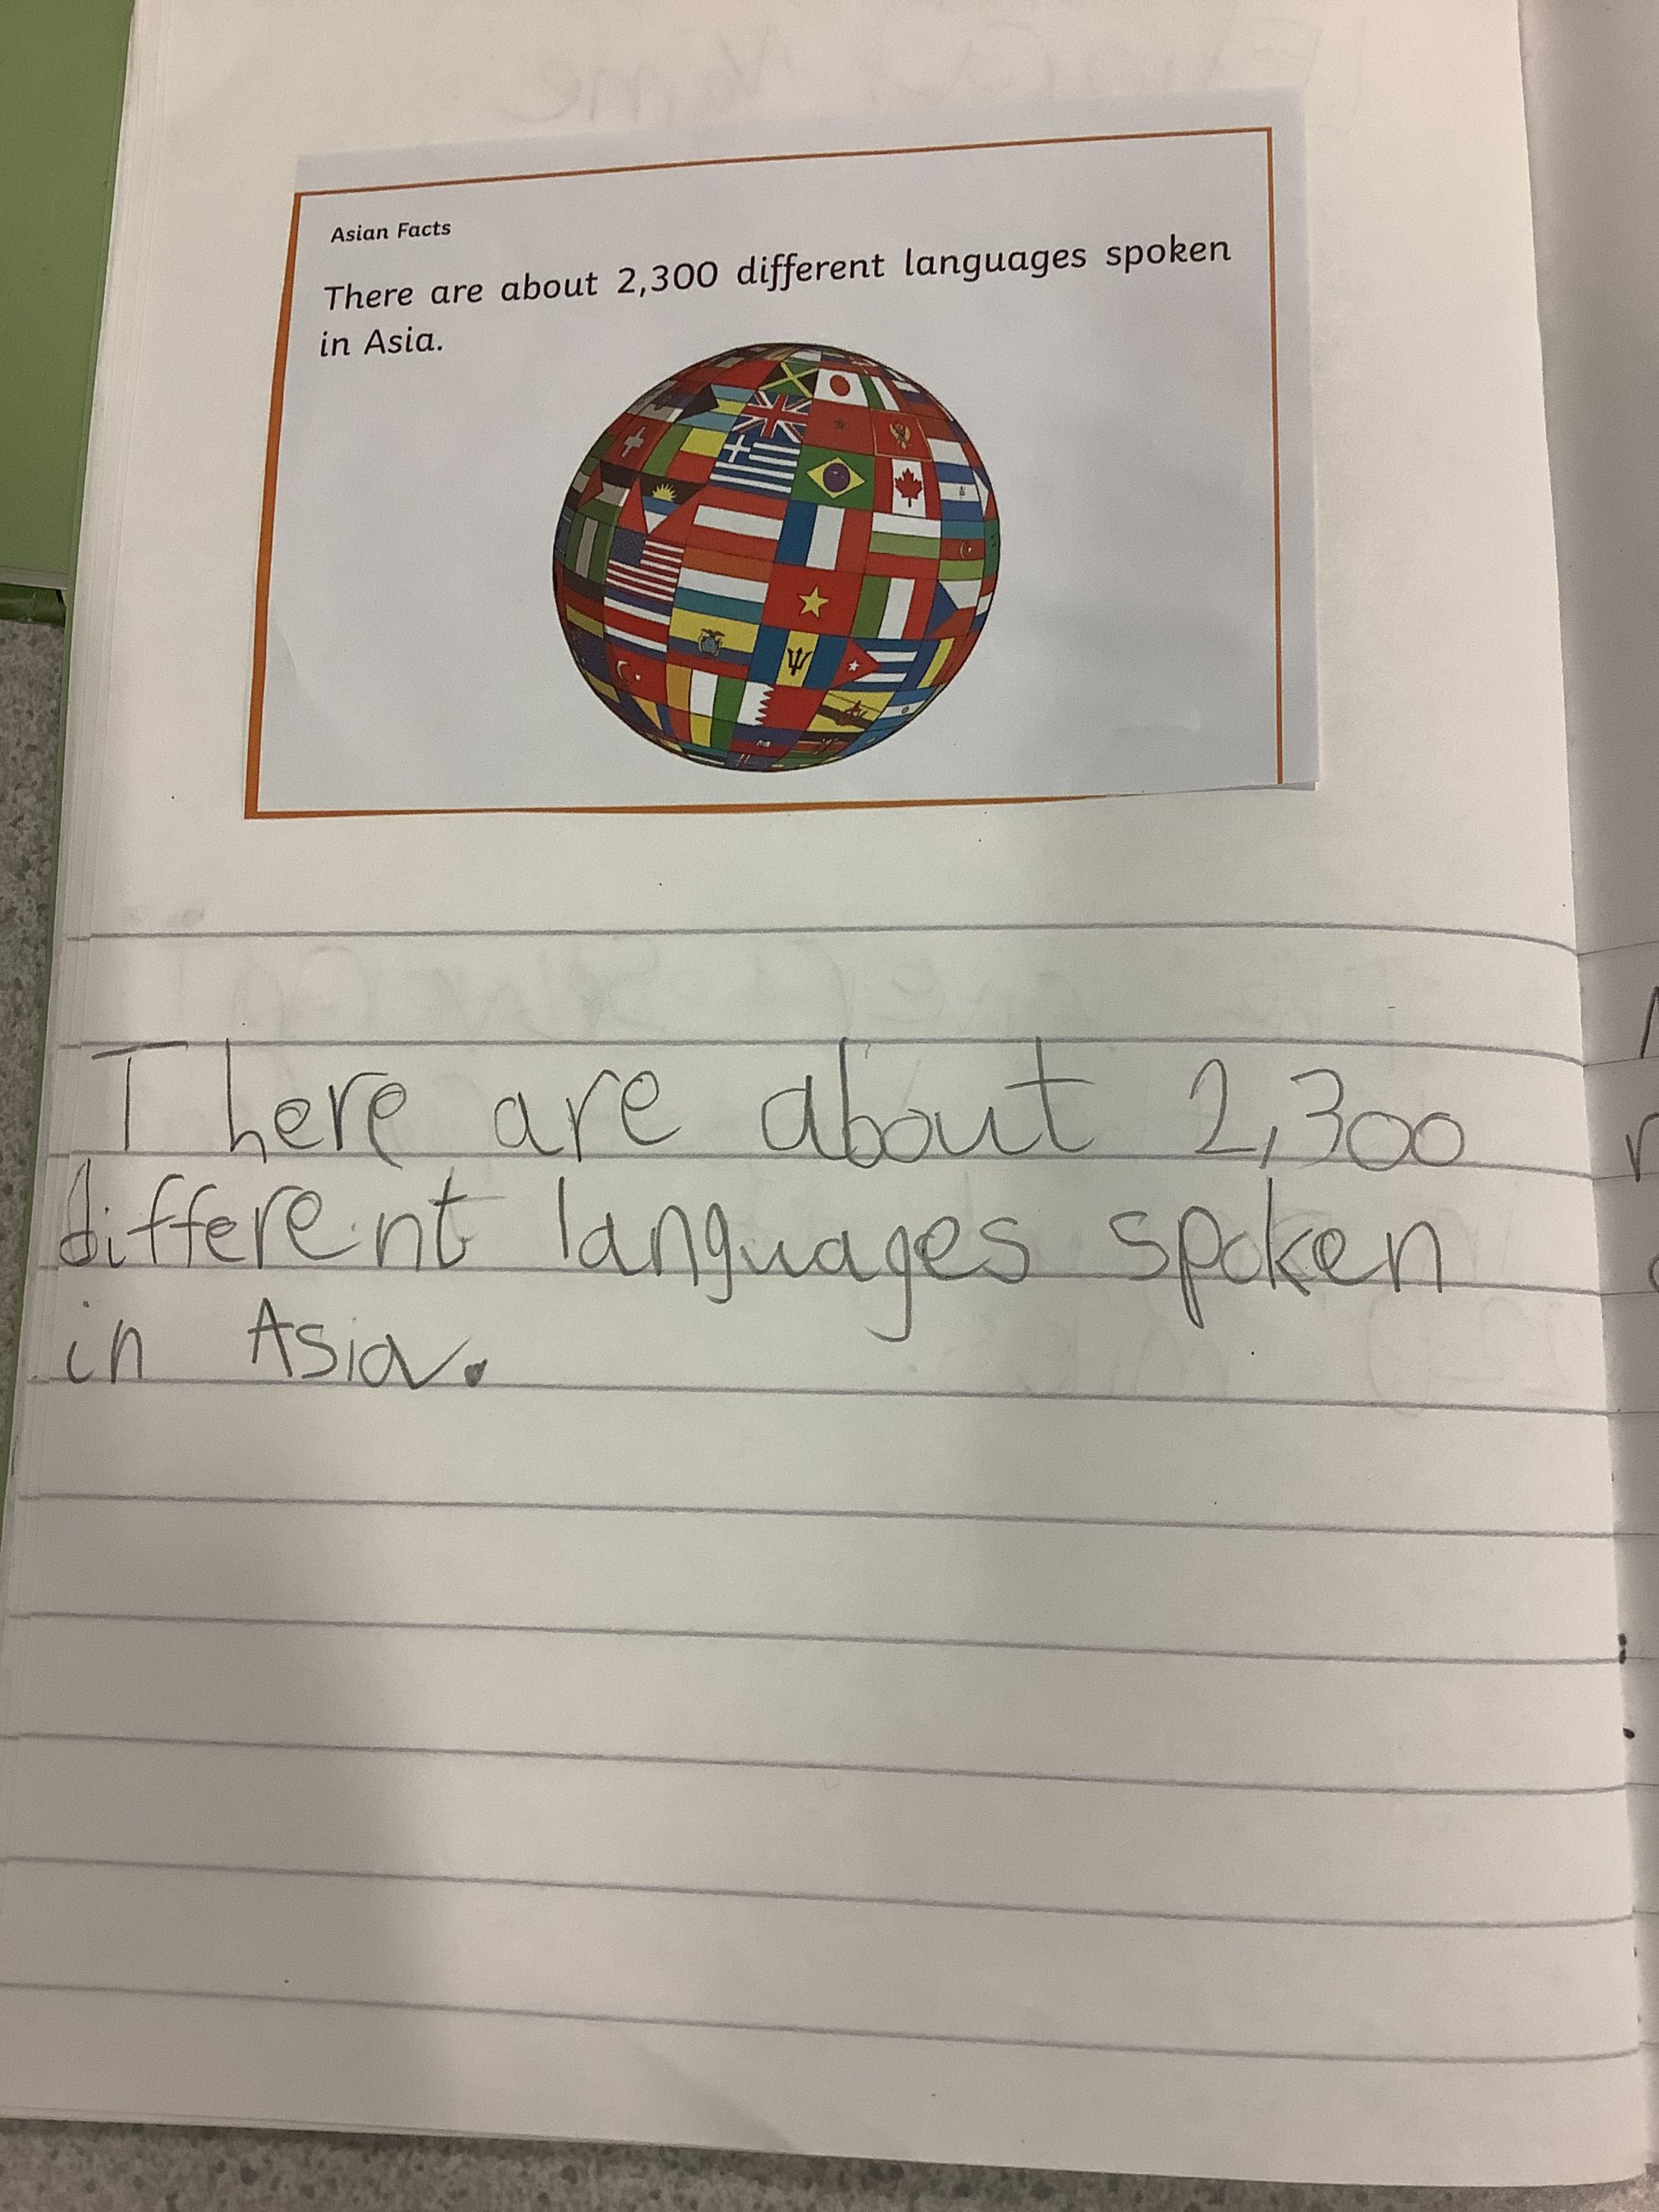 Asian Facts
There are about 2,300 different languages spoken
in Asia.
There are about 2,300
different languages spoken
in Asia.